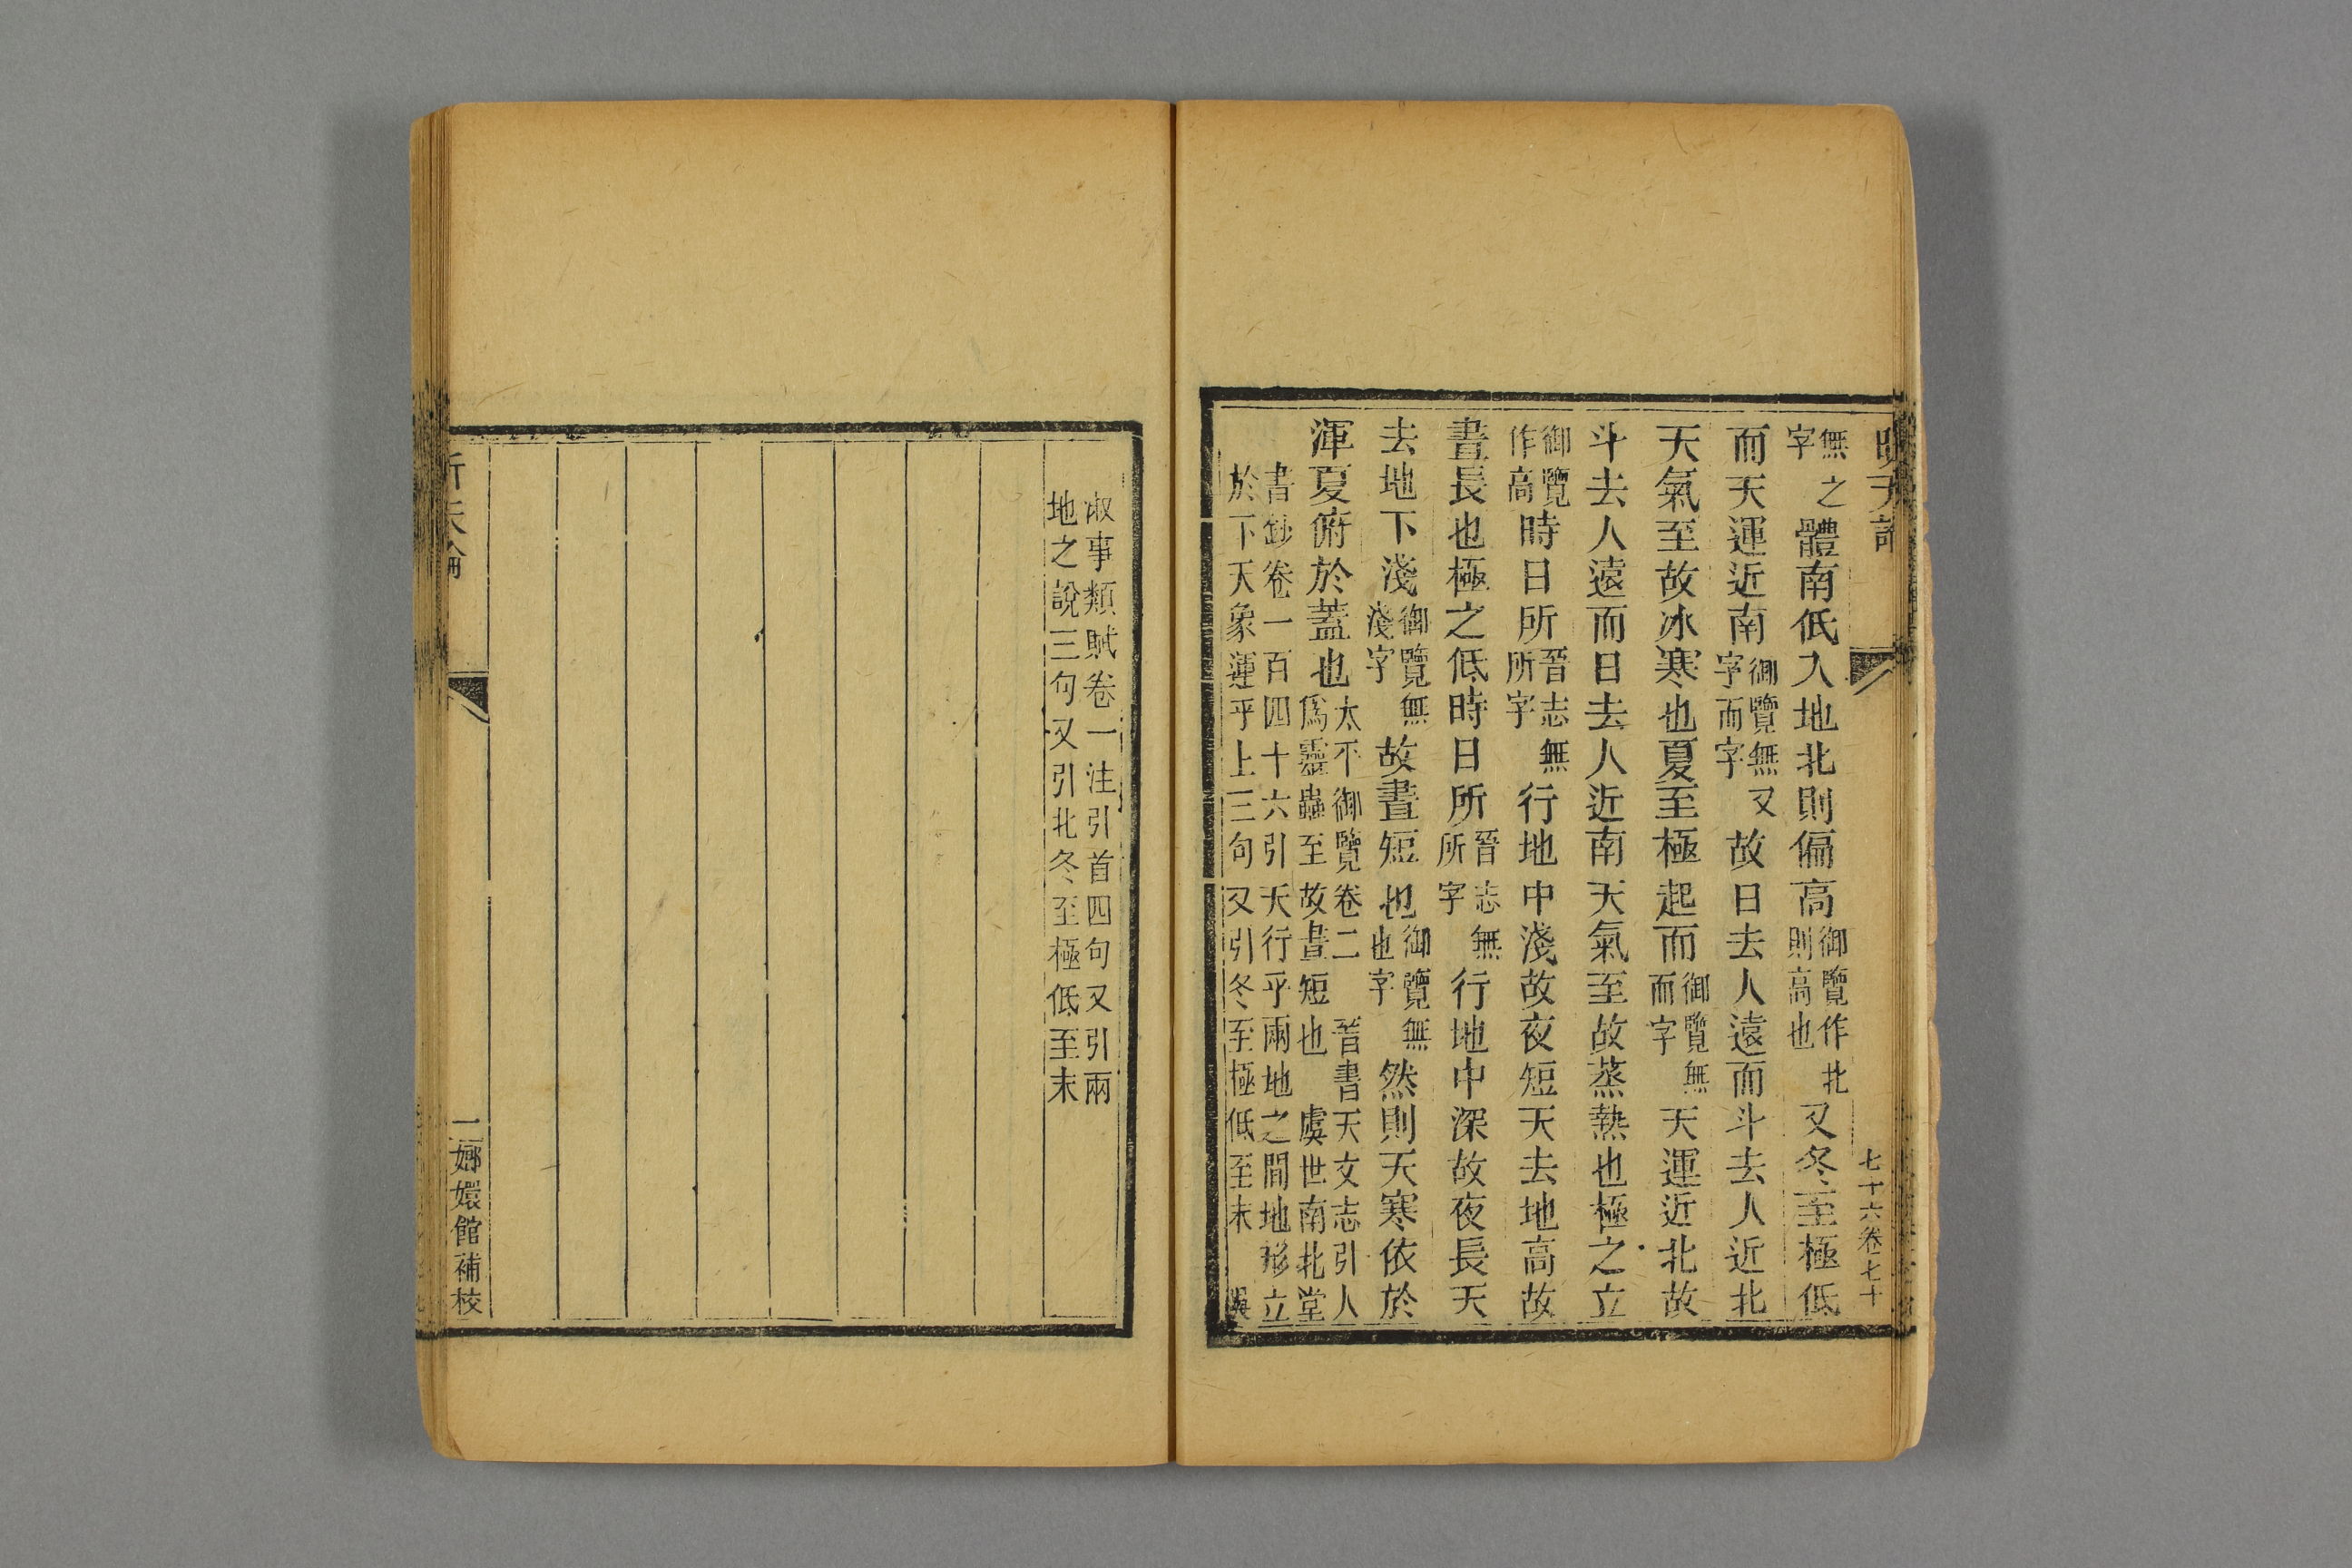 昕天論
七十六卷七十
無之字體南低入地北則偏高御覽作北則高也又冬至極低
而天運近南御覽無又字而字故日去人遠而斗去人近北
天氣至故冰寒也夏至極起而御覽無而字天運近北故
斗去人遠而日去人近南天氣至故蒸熱也極之立
御覽作高時日所晉志無所字行地中淺故夜短天去地高故
晝長也極之低時日所晉志無所字行地中深故夜長天
去地下淺御覽無淺字故晝短也御覽無也字然則天寒依於
渾夏俯於蓋也太平御覽卷二 晉書天文志引人爲靈蟲至故晝短也 虞世南北堂
書鈔卷一百四十六引天行乎兩地之間地形立
於下天象運乎上三句又引冬至極低至末 吳
淑事類賦卷一注引首四句又引兩
地之說三句又引北冬至極低至末
昕天論
二
嫏嬛館補校